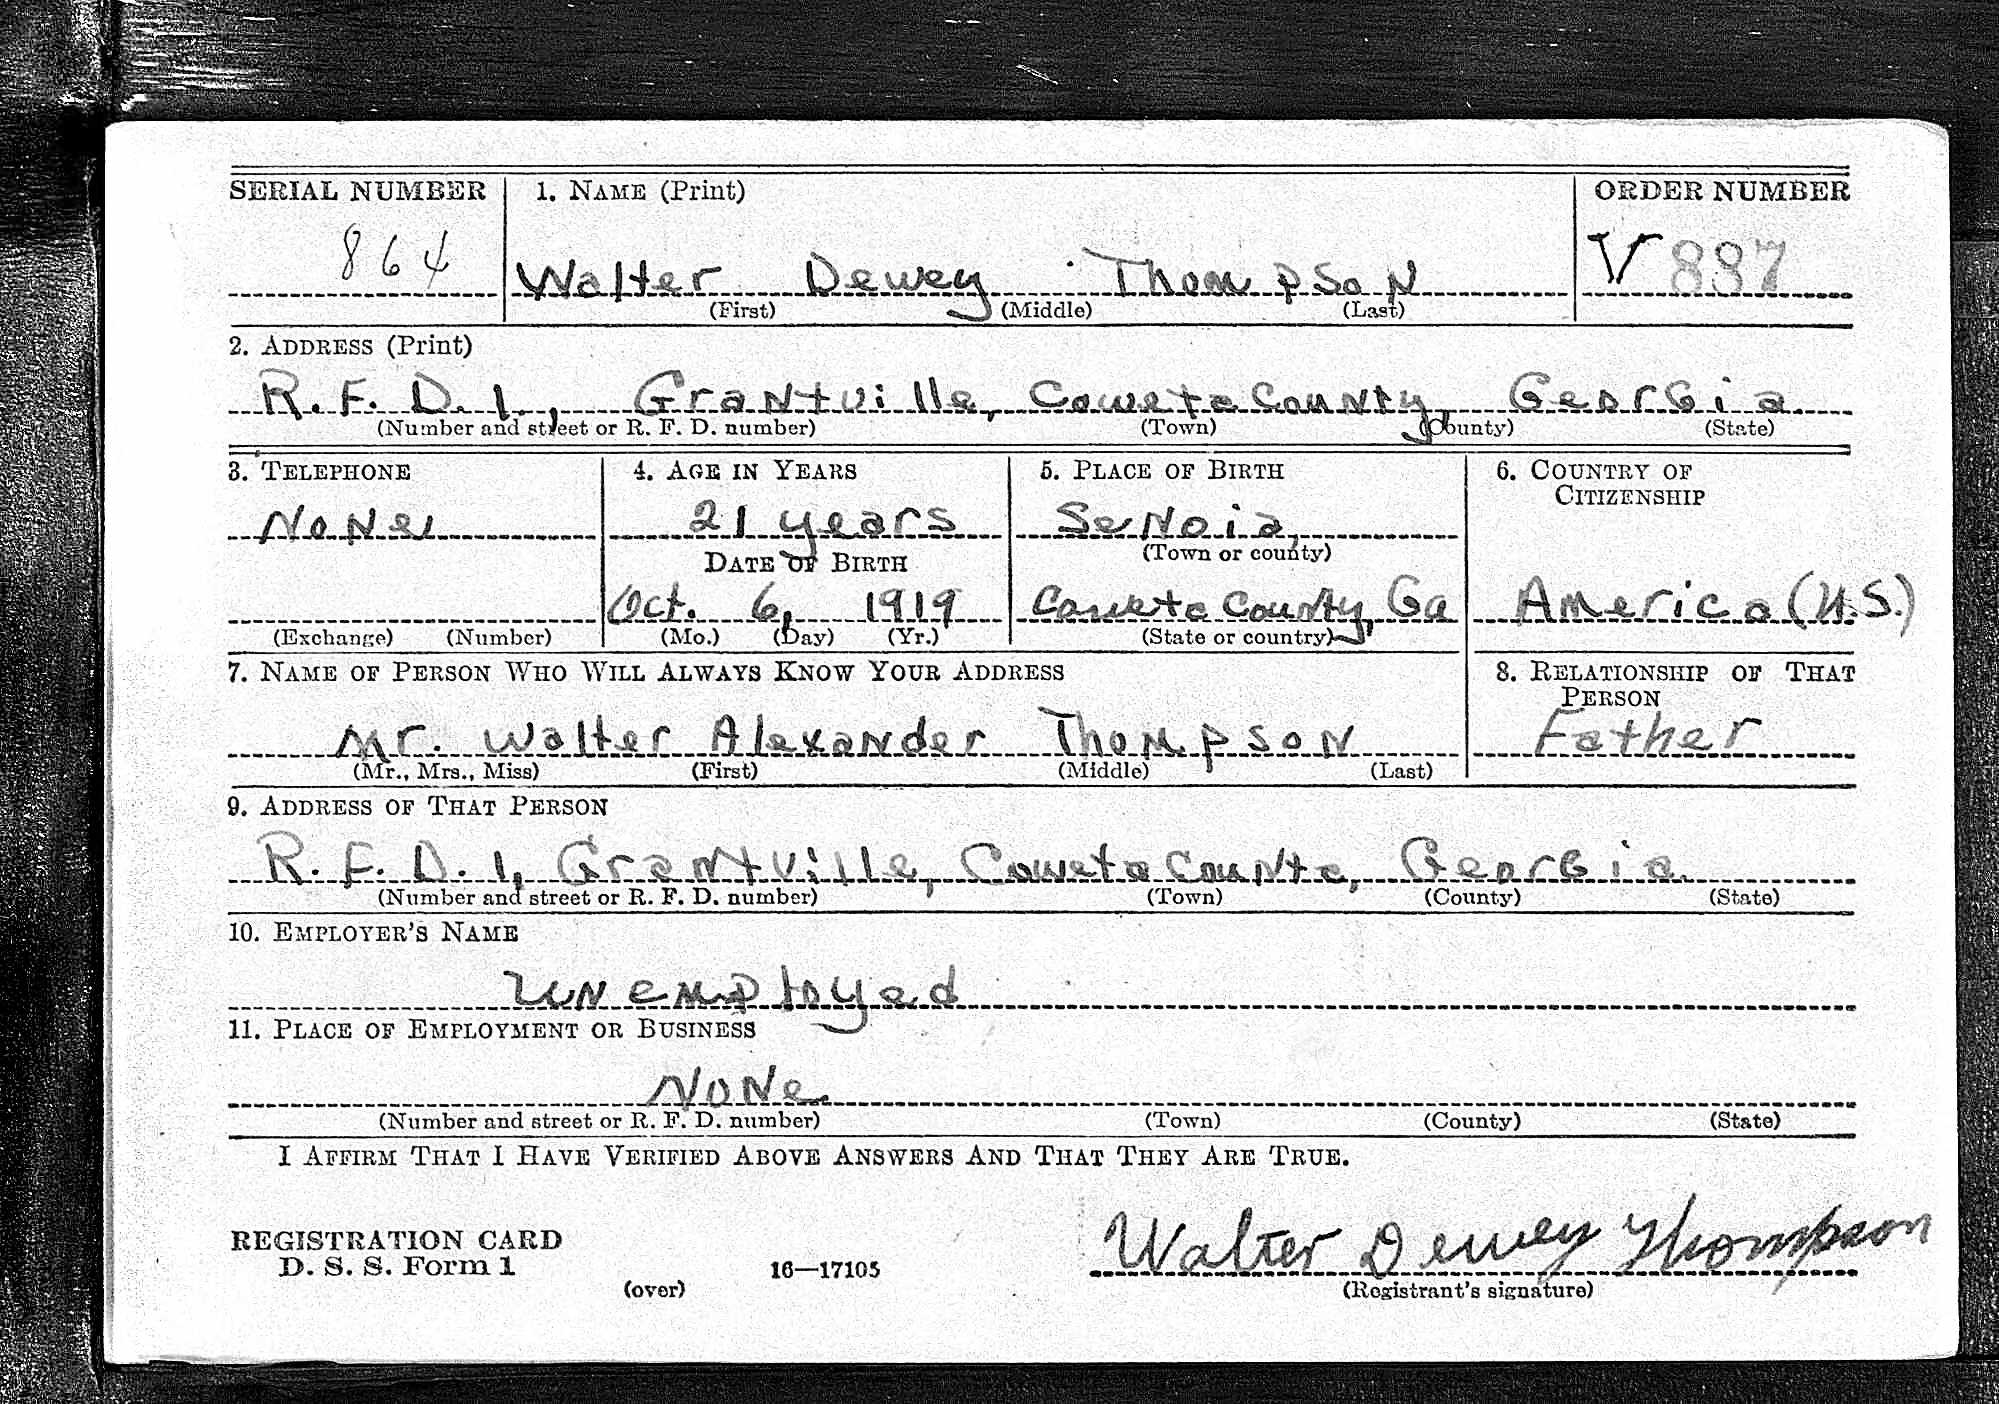 SERIAL NUMBER 1. NAME (Print) ORDER NUMBER
864 Walter Dewey Thompson V 887
(First) (Middle) (Last)
2. ADDRESS (Print)
R. F. D. 1., Grantville, Coweta County, Georgia.
(Number and street or R. F. D. number) (Town) (County) (State)
3. TELEPHONE 4. AGE IN YEARS 5. PLACE OF BIRTH 6. COUNTRY OF
CITIZENSHIP
None 21 years Senoia,
DATE OF BIRTH (Town or county)
Oct. 6, 1919 Coweta County, Ga America (U.S.)
(Exchange) (Number) (Mo.) (Day) (Yr.) (State or country)
7. NAME OF PERSON WHO WILL ALWAYS KNOW YOUR ADDRESS 8. RELATIONSHIP OF THAT
PERSON
Mr. Walter Alexander Thompson Father
(Mr., Mrs., Miss) (First) (Middle) (Last)
9. ADDRESS OF THAT PERSON
R. F. D. 1, Grantville, Coweta Counta, Georgia.
(Number and street or R. F. D. number) (Town) (County) (State)
10. EMPLOYER'S NAME
Unemployed
11. PLACE OF EMPLOYMENT OR BUSINESS
None
(Number and street or R. F. D. number) (Town) (County) (State)
I AFFIRM THAT I HAVE VERIFIED ABOVE ANSWERS AND THAT THEY ARE TRUE.
REGISTRATION CARD
D. S. S. Form 1 16—17105 Walter Dewey Thompson
(over) (Registrant's signature)